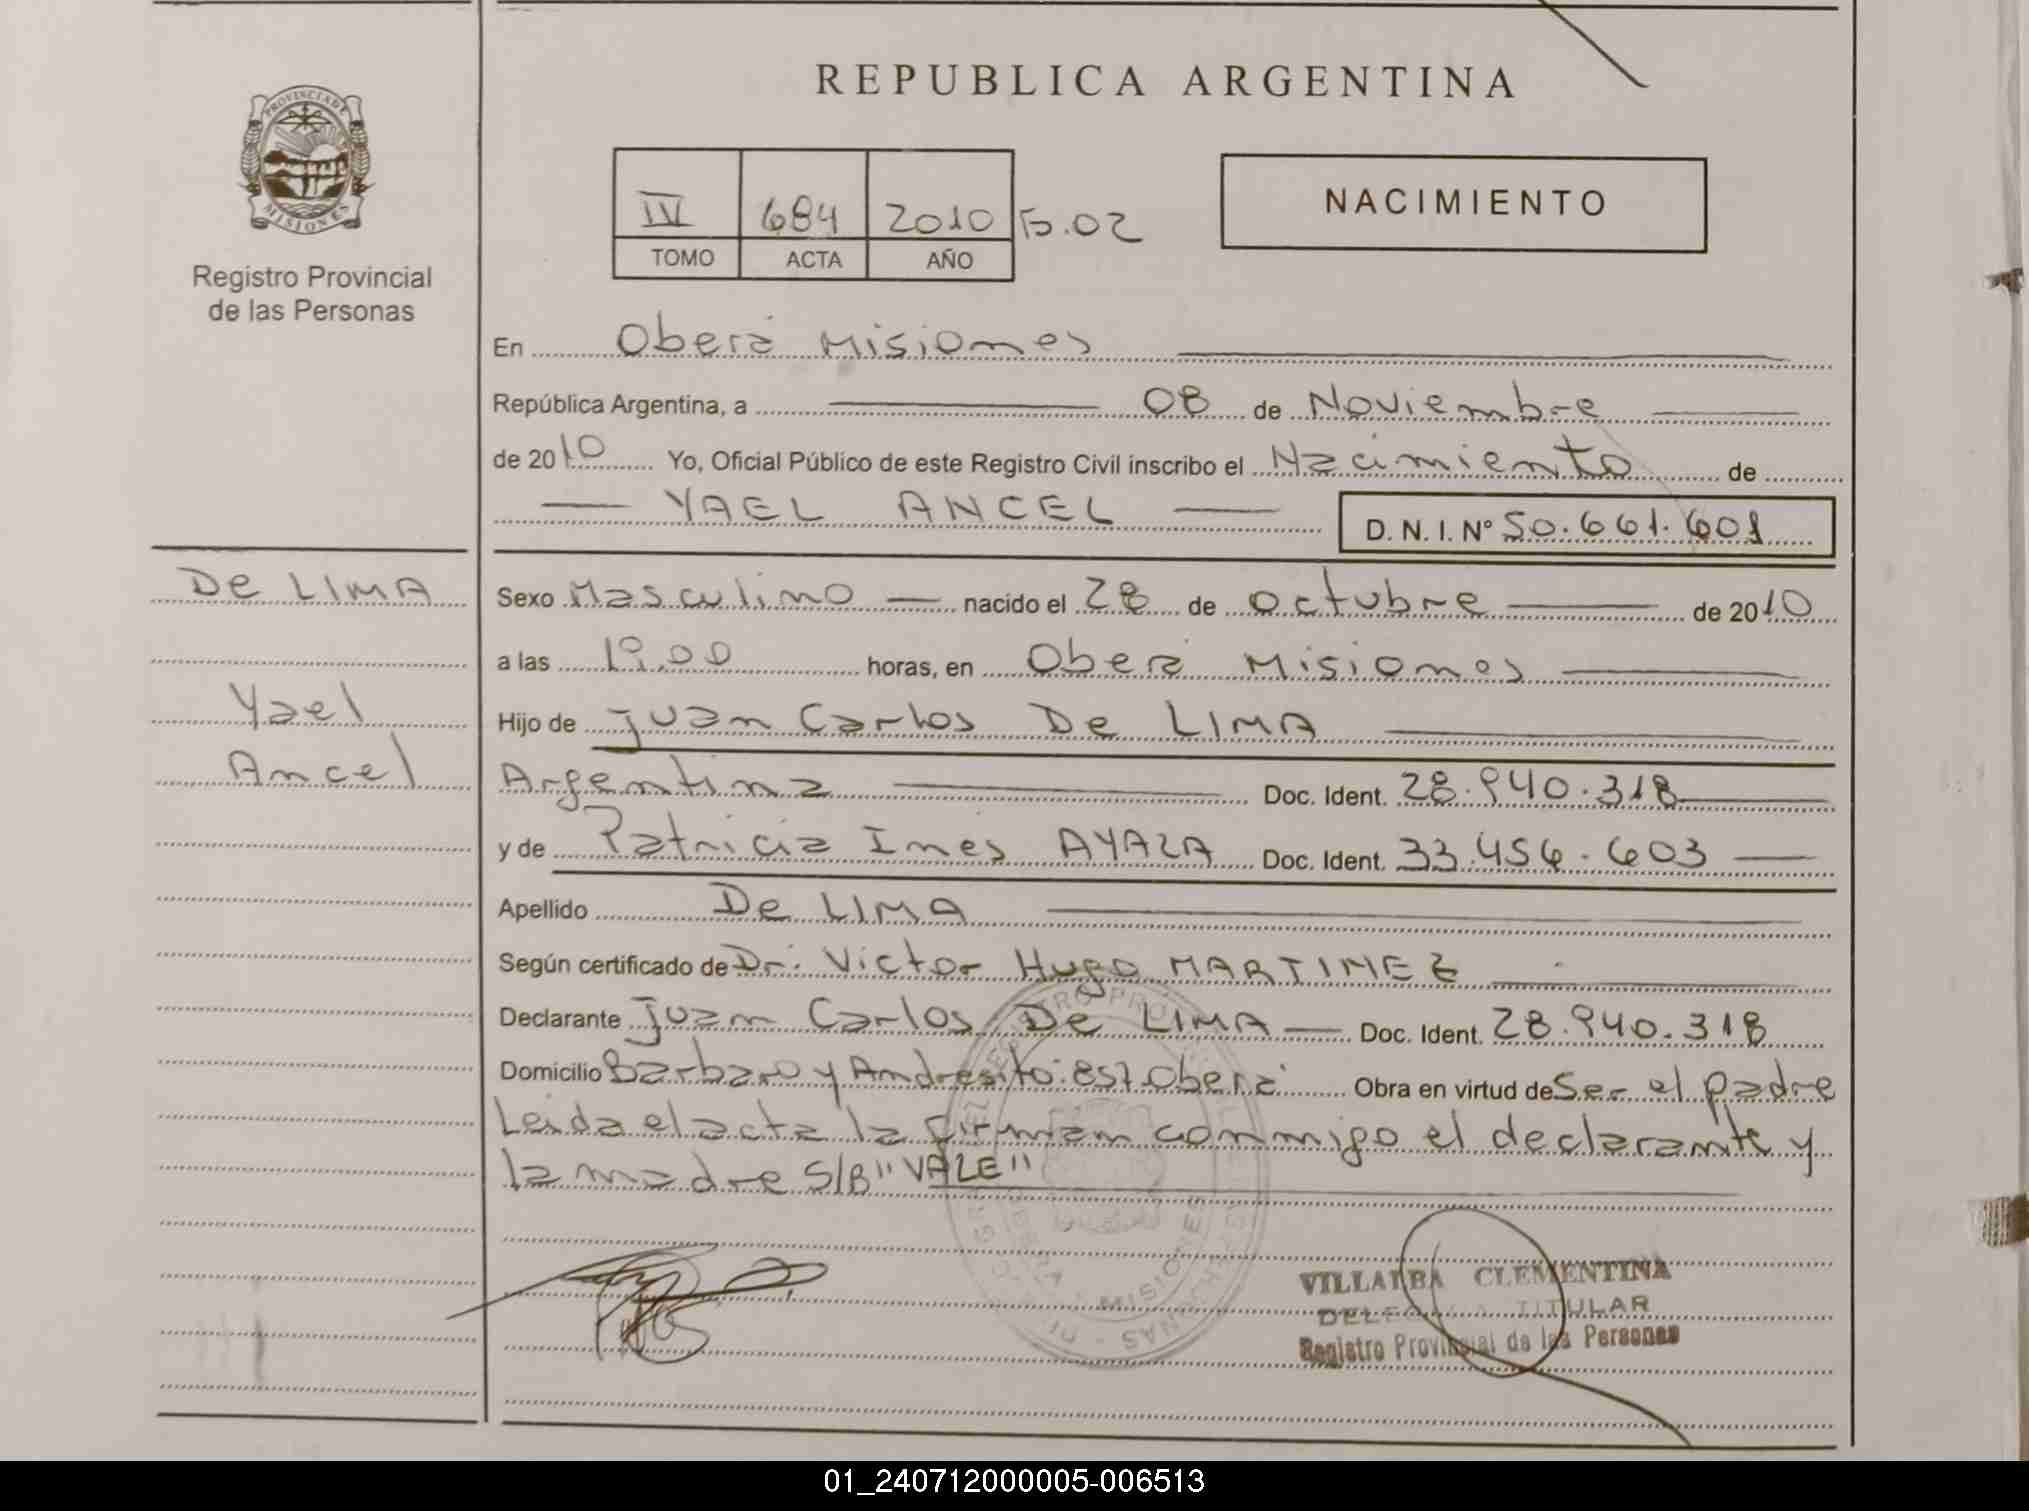 REPUBLICA ARGENTINA
PROVINCIA DE
MISIONES
Registro Provincial
de las Personas
IV 684 2010 F.02
TOMO ACTA AÑO
NACIMIENTO
En Oberá Misiones
República Argentina, a 08 de Noviembre
de 2010 Yo, Oficial Público de este Registro Civil inscribo el Nacimiento de
YAEL ANCEL D.N.I. Nº 50.661.601
De LIMA
Yael
Ancel
Sexo Masculino nacido el 28 de octubre de 2010
a las 19.00 horas, en Oberá Misiones
Hijo de Juan Carlos De LIMA
Argentina Doc. Ident. 28.940.318
y de Patricia Inés AYALA Doc. Ident. 33.456.603
Apellido De LIMA
Según certificado de Dr. Victor Hugo MARTINEZ
Declarante Juan Carlos De LIMA Doc. Ident. 28.940.318
Domicilio Barbaro y Andresito Oberá Obra en virtud de Ser el padre
Leida el acta la firman conmigo el declarante y
la madre S/B "VALE"
MISIONES
VILLALBA CLEMENTINA
TITULAR
Registro Provincial de las Personas
01_240712000005-006513